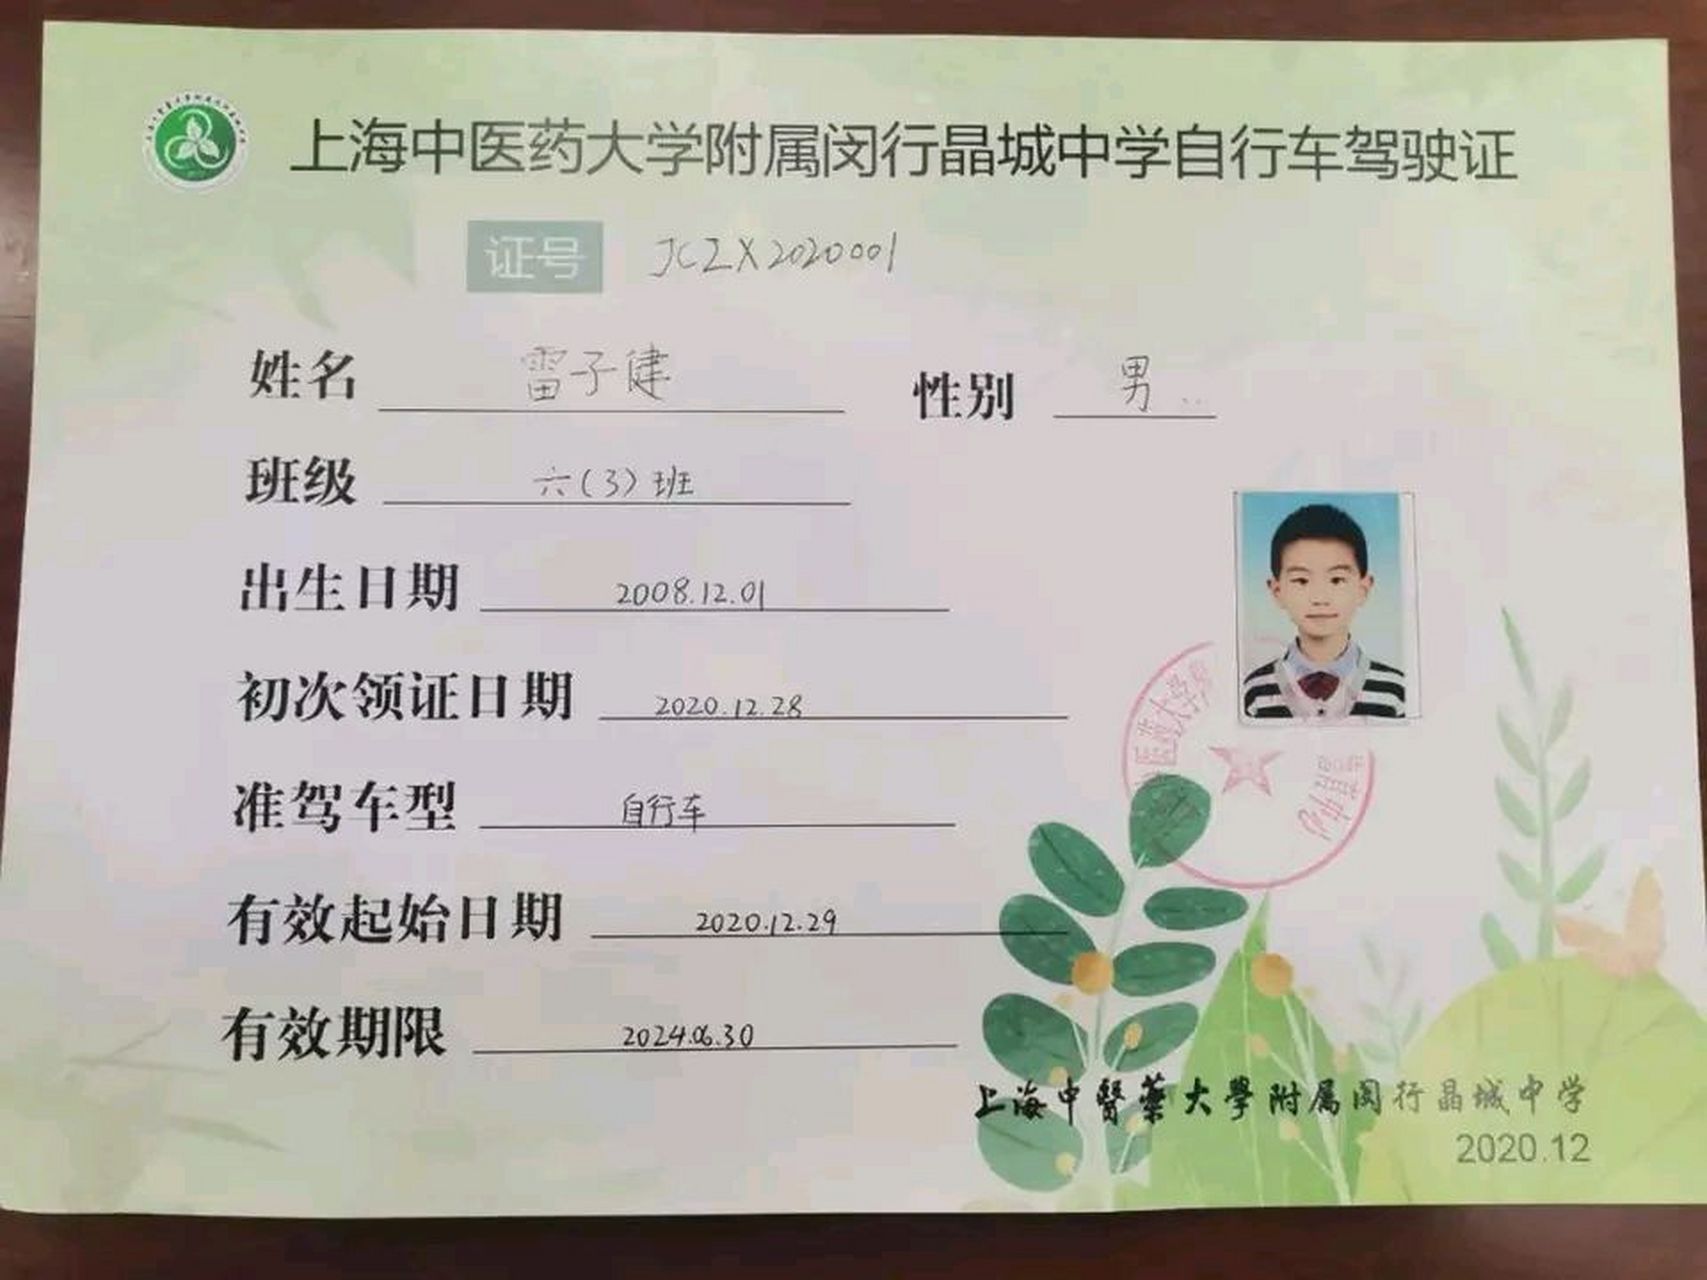 上海中医药大学附属闵行晶城中学自行车驾驶证
证号 JCZX2020001
姓名 雷子健 性别 男
班级 六(3)班
出生日期 2008.12.01
初次领证日期 2020.12.28
准驾车型 自行车
有效起始日期 2020.12.29
有效期限 2024.06.30
上海中醫藥大學附属闵行晶城中学
2020.12